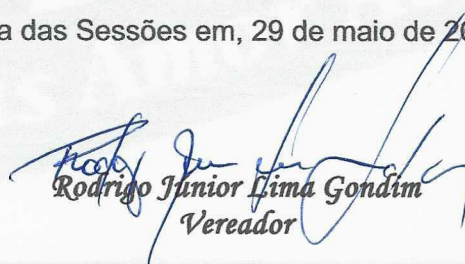 a das Sessões em, 29 de maio de 20
Rodrigo Junior Lima Gondim
Vereador